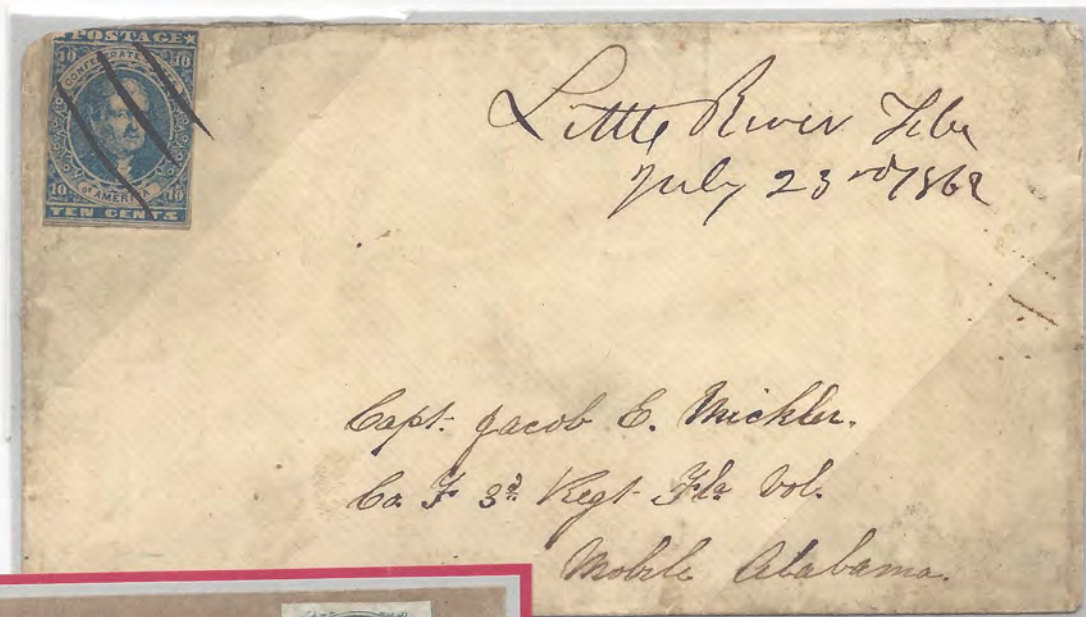 POSTAGE
10 10
CONFEDERATE STATES
OF AMERICA
10 10
TEN CENTS
Little River Fla
July 23rd 1862
Capt. Jacob E. Mickler.
Co F 3d Regt Fla Vol.
Mobile Alabama.